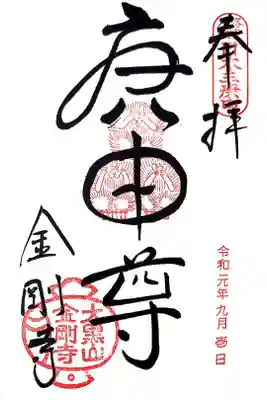 奉拝
庚申尊
令和元年九月壱日
金剛寺
大黒山
金剛寺